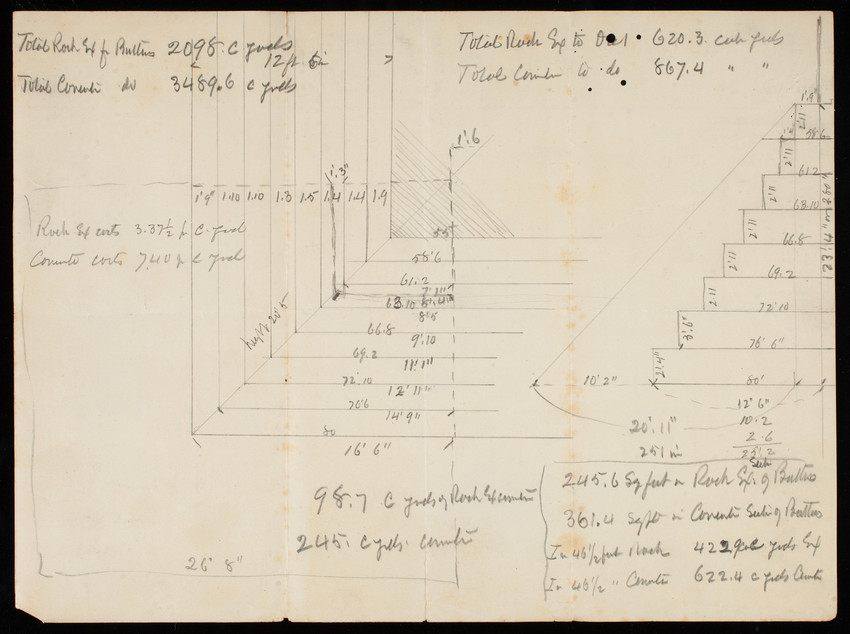 Total Rock Ex for Buttress 2098. c yards
12 ft 6 in
Total Concrete do 3489.6 c yards
Total Rock Ex to 620.3. cub yds
Total to do 867.4 " "
1'.6
1'.3"
1'9" 1.10 1.10 1.3 1.5 1.4 1.4 1.9
Rock Ex costs 3.37½ p c. yard
Concrete costs 7.40 p c yard
55
58'6
61.2
7'.1"
63.10
8'5
66.8
9'.10
69.2
11'.1"
72.10
12'11"
76.6
14'9"
80
16'6"
height 20'.5
26' 8"
1'.9"
58.6
61.2
63.10
66.8
69.2
72'10
76'6"
80'
10'2"
12'6"
10.2
2.6
25'.2
20'.11"
251 in
98.7 c yards of Rock Excavation
245. c yds. concrete
245.6 Sq feet in Rock Ex. of Buttress
361.4 Sq ft in Concrete Sectn of Buttress
In 46½ feet Rock 422.9 c yards Ex
In 46½ " Concrete 622.4 c yds Concrete